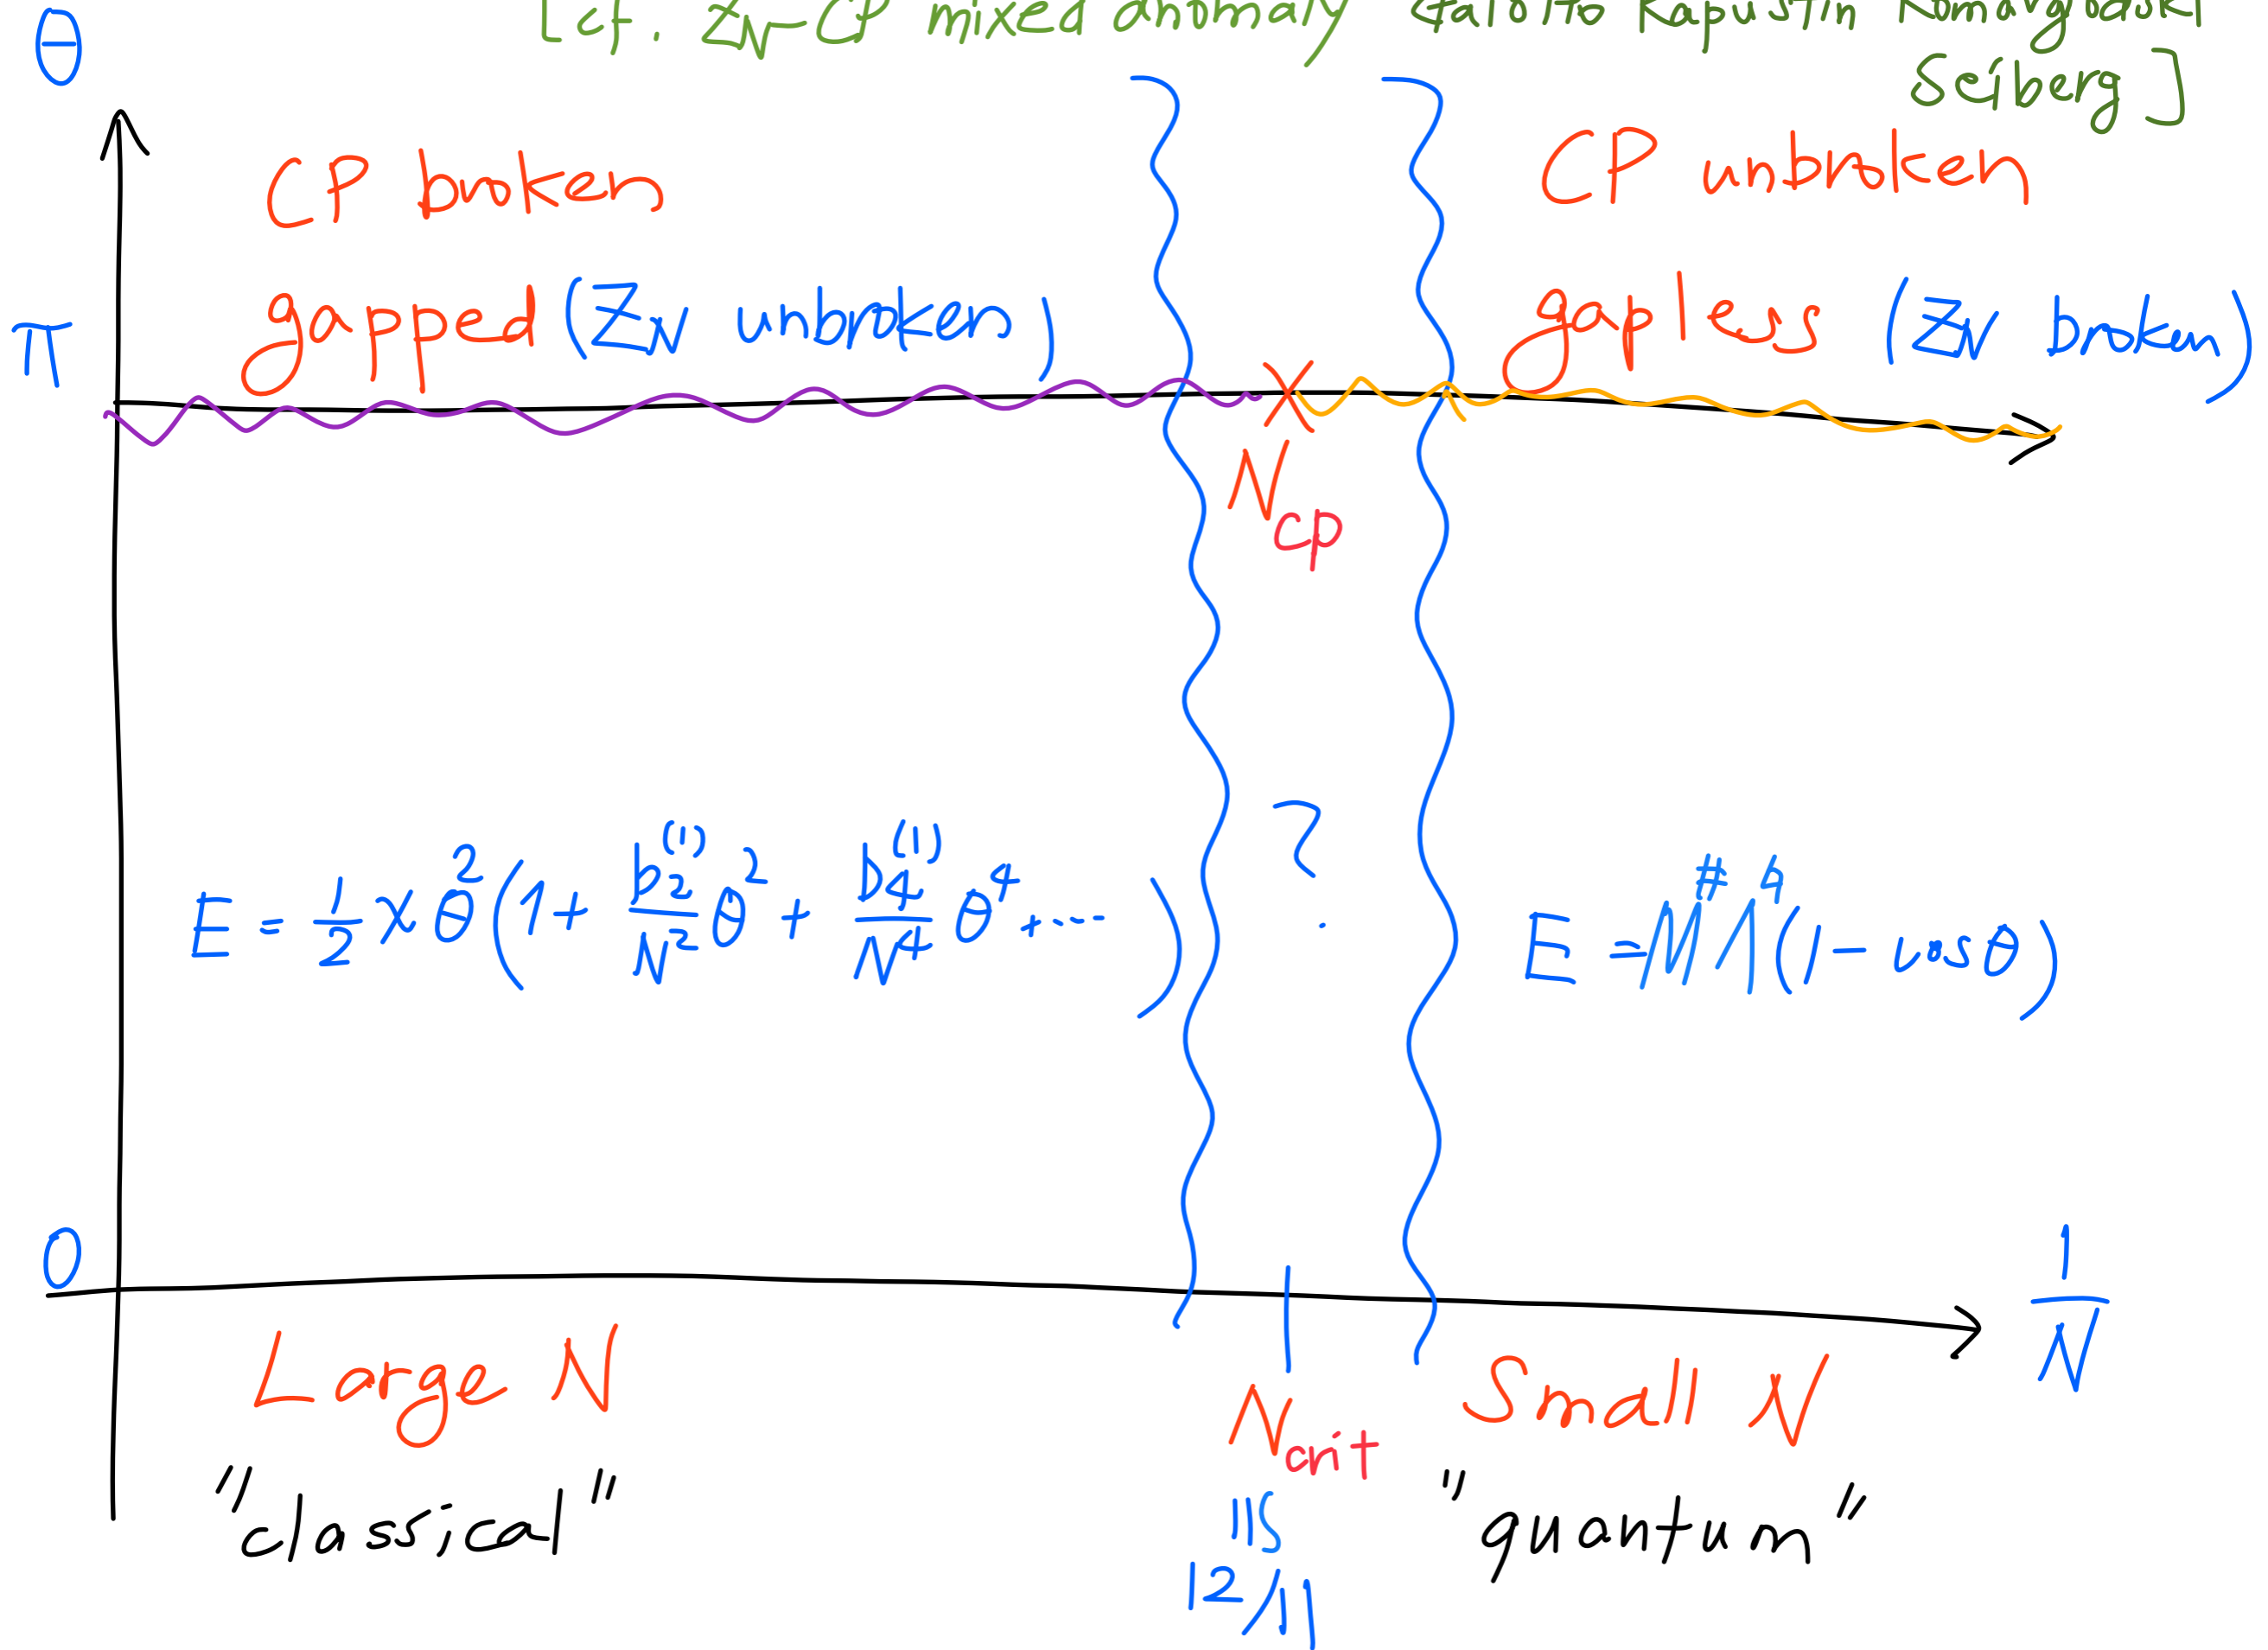 [cf. ZN-CP mixed anomaly Gaiotto Kapustin Komargodski
Seiberg]
θ
CP broken
gapped (ZN unbroken)
CP unbroken
gapless (ZN broken)
π
N_CP
E = 1/2 χ θ^2 (1 + b_2^(1)/N^2 θ^2 + b_4^(1)/N^4 θ^4 + ...)
?
E = Λ^4 (1 - cos θ)
0
1/N
Large N
N_crit
Small N
"classical"
"quantum"
IIS
12/11